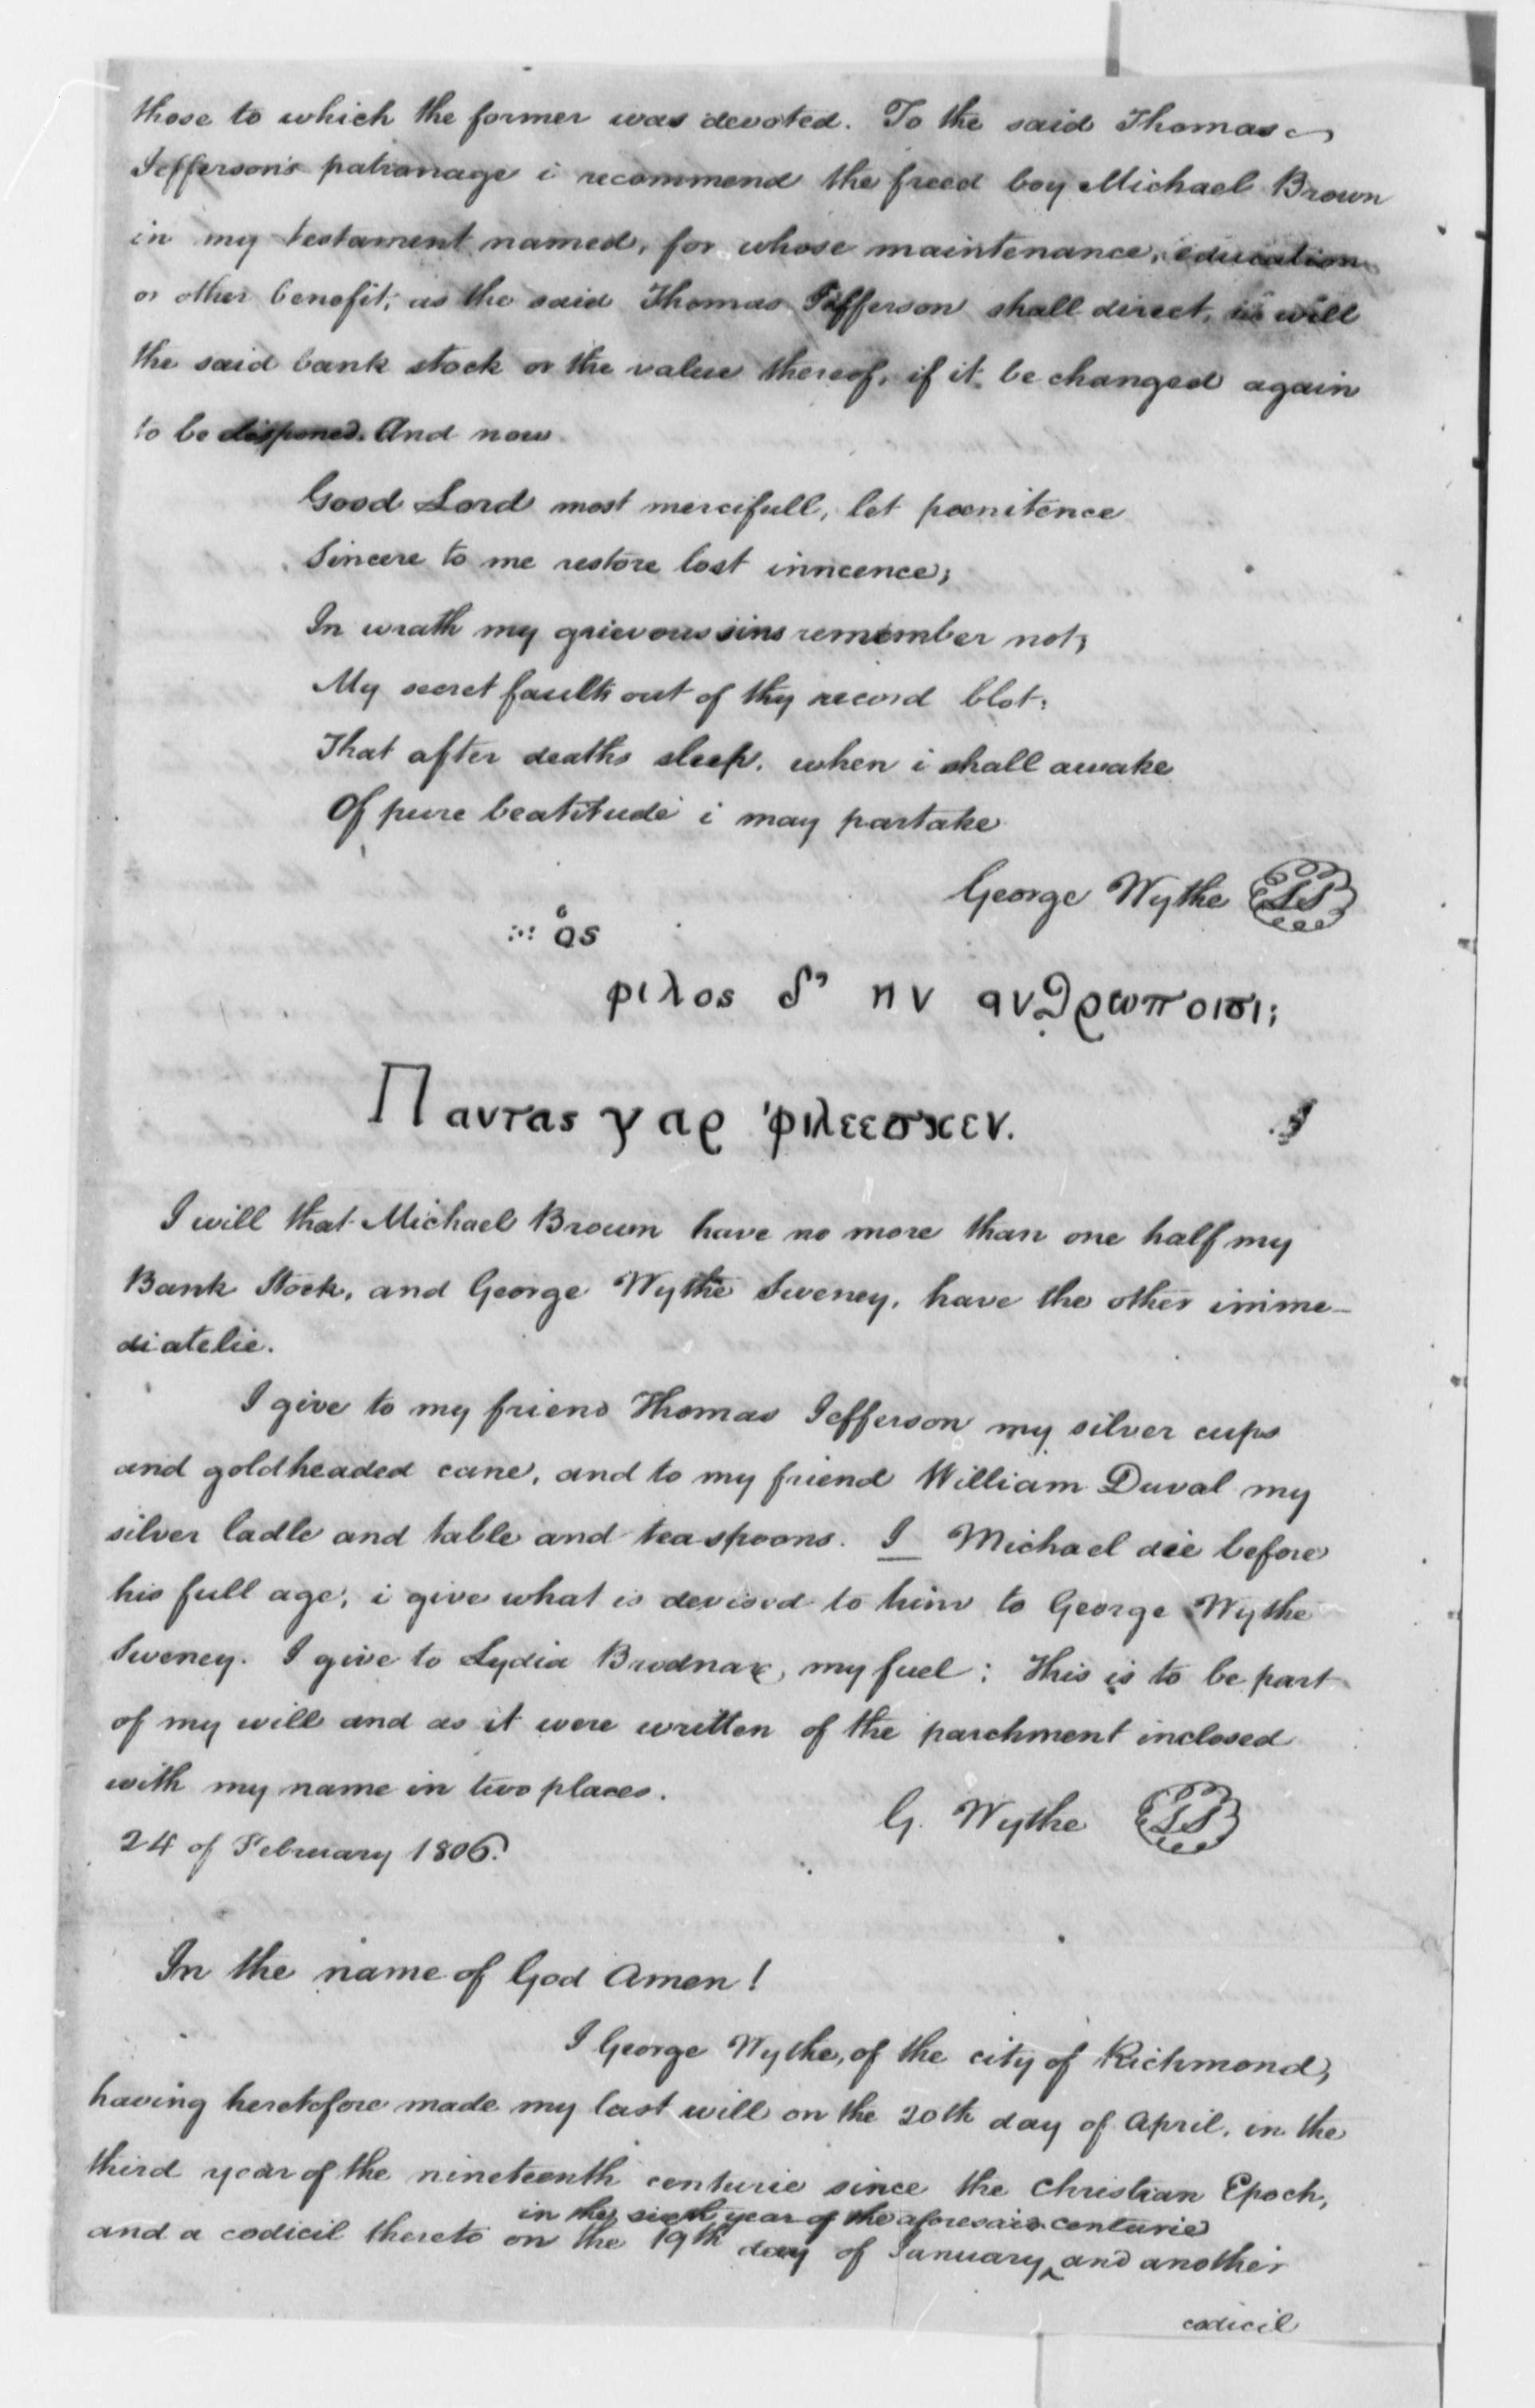 those to which the former was devoted. To the said Thomas
Jefferson's patronage i recommend the freed boy Michael Brown
in my testament named, for whose maintenance, education
or other benefit, as the said Thomas Jefferson shall direct, i will
the said bank stock or the value thereof, if it be changed again
to be disposed. And now
Good Lord most mercifull, let poenitence
Sincere to me restore lost inncence;
In wrath my grievous sins remember not;
My secret faults out of thy record blot:
That after deaths sleep. when i shall awake
Of pure beatitude i may partake
George Wythe LS
ὁς
φιλος δ’ ην ανθρωποισι;
Παντας γαρ φιλεεσκεν.
I will that Michael Brown have no more than one half my
Bank Stock, and George Wythe Sweney, have the other imme-
diatelie.
I give to my friend Thomas Jefferson my silver cups
and goldheaded cane, and to my friend William Duval my
silver ladle and table and teaspoons. I Michael die before
his full age, i give what is devised to him to George Wythe
Sweney. I give to Lydia Brodnax, my fuel: This is to be part
of my will and as it were written of the parchment inclosed
with my name in two places.
G. Wythe LS
24 of February 1806.
In the name of God Amen!
I George Wythe, of the city of Richmond,
having heretofore made my last will on the 20th day of April, in the
third year of the nineteenth centurie since the Christian Epoch,
in the sixth year of the aforesaid centurie
and a codicil thereto on the 19th day of January ‸ and another
codicil